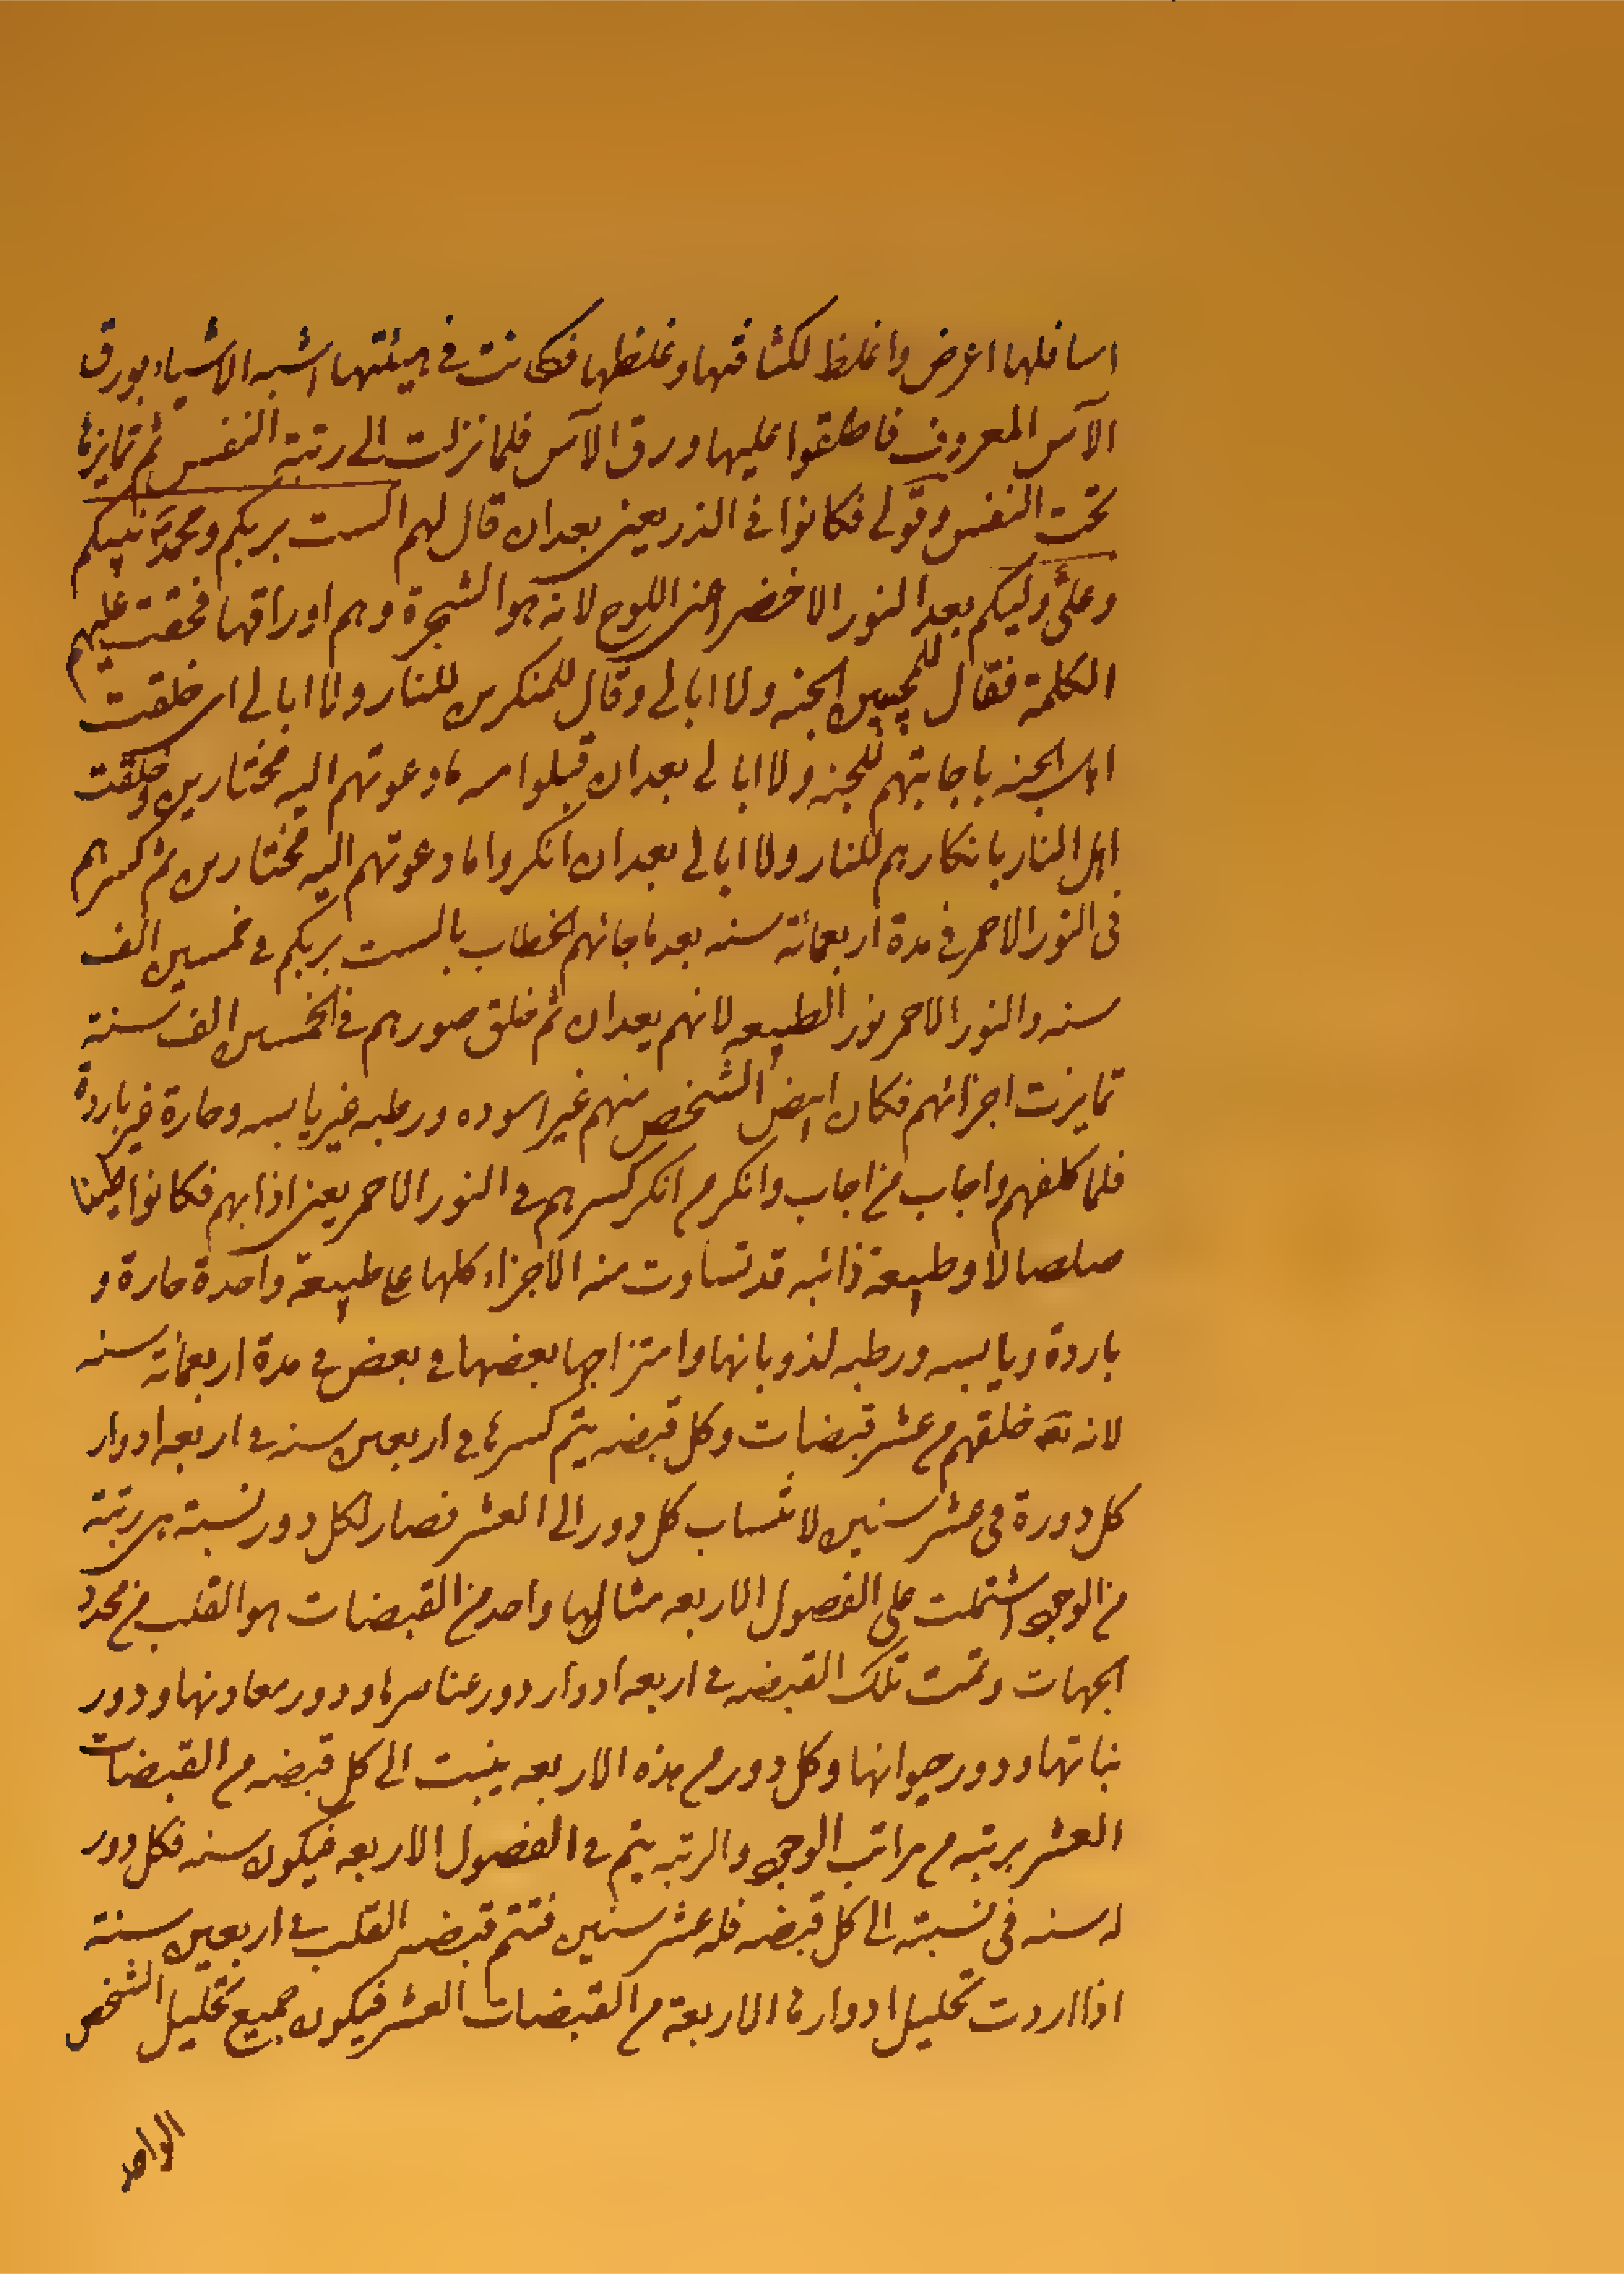 اسافلها اعرض واغلظ لكثافتها وغلظها فكانت في هيئتها اشبه الاشياء بورق
الآس المعروف فاطلقوا عليها ورق الآس فلما نزلت الى رتبة النفس ثم تمايزها
تحت النفس وقولى فكانوا في الذر يعنى بعد ان قال لهم الست بربكم ومحمد نبيكم
وعلى وليكم بعد النور الاخضر اعنى اللوح لانه هو الشجرة وهم اوراقها فحقت عليهم
الكلمة فقال للمجيبين للجنه ولا ابالى وقال للمنكرين للنار ولا ابالى اى خلقت
اهل الجنه باجابتهم للجنه ولا ابالى بعد ان قبلوا منه ما دعوتهم اليه مختارين وخلقت
اهل النار بانكارهم للنار ولا ابالى بعد ان انكروا ما دعوتهم اليه مختارين ثم كسرهم
فى النور الاحمر في مدة اربعمائة سنه بعد ما جائهم الخطاب بالست بربكم في خمسين الف
سنه والنور الاحمر نور الطبيعه لانهم بعد ان تم خلق صورهم في الخمسين الف سنة
تمايزت اجزائهم فكان ابيض الشخص منهم غير اسوده ورطبه غير يابسه وحارة غير باردة
فلما كلفهم واجاب من اجاب وانكر من انكر كسرهم في النور الاحمر يعنى اذابهم فكانوا طينا
صلصالا وطبيعة ذائبه قد تساوت منه الاجزاء كلها على طبيعة واحدة حارة و
باردة ويابسه ورطبه لذوبانها وامتزاجها بعضها في بعض في مدة اربعمائة سنه
لانه تعه خلقهم من عشر قبضات وكل قبضه يتم كسرها في اربعين سنه في اربعه ادوار
كل دورة فى عشر سنين لانتساب كل دور الى العشر فصار لكل دور نسبة هى رتبة
من الوجود اشتملت على الفصول الاربعه مثالها واحد من القبضات هو القلب من محدد
الجهات وتمت تلك القبضه في اربعه ادوار دور عناصرها ودور معادنها ودور
نباتها ودور حيوانها وكل دور من هذه الاربعه ينسب الى كل قبضه من القبضات
العشر برتبه من مراتب الوجود والرتبه يتم في الفصول الاربعه فيكون سنه فكل دور
له سنه فى نسبته الى كل قبضه فله عشر سنين فتتم قبضه القلب في اربعين سنة
اذا اردت تحليل ادوارها الاربعة من القبضات العشر فيكون جميع تحليل الشخص
الواحد